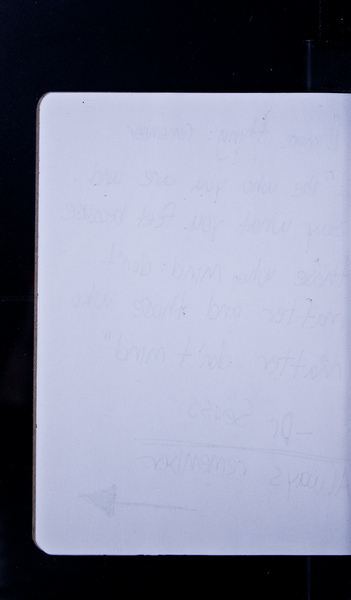 "Be who you are and
say what you feel because
those who mind don't
matter and those who
matter don't mind"
- Dr. Seuss
Always remember